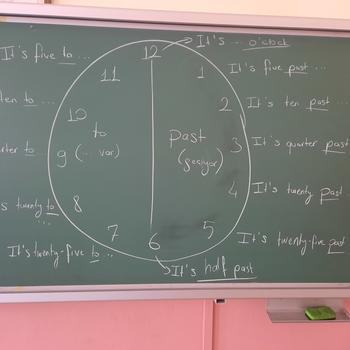 It's ... o'clock
It's five to ...
12
11
1
It's five past ...
ten to ...
10
2
It's ten past ...
to
Past
rter to
9
(... var)
(geçiyor)
3
It's quarter past
s twenty to
...
8
4
It's twenty past
...
7
5
It's twenty-five to ...
6
It's twenty-five past
...
It's half past